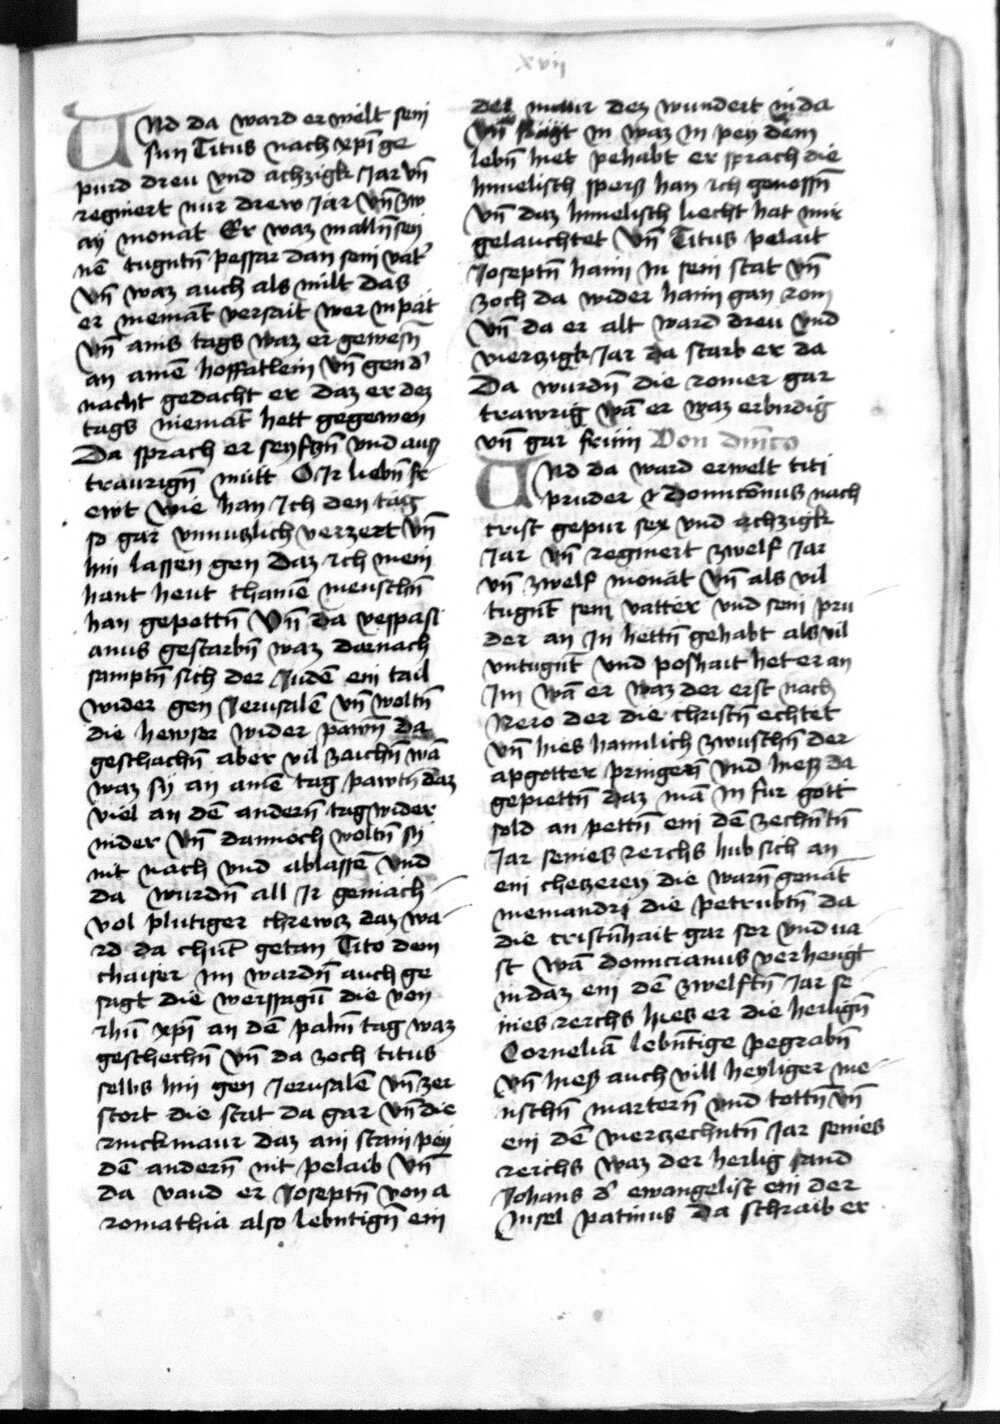 xvii
Vnd da ward erwelt sein
sun Titus nach xp̄i ge
purd dreu vnd achzigk Jar vn̄
regniert nur drew Jar vn̄ zw
ay monat Er waz in alln̄ sei
nē tugntn̄ pesser dan sein vat'
vn̄ waz auch als milt das
er niemāt versait wer in pat
vn̄ ains tags waz er gewesn̄
an ainē hoffatlein vn̄ gen d'
nacht gedacht er daz er dez
tags niemāt hett gegewen
Da sprach er seyftzn̄ vnd auß
traurign̄ mutt O Ir liebn̄ fr
ewt wie han Ich den tag
so gar vnnutzlich verzert vn̄
hin lassen gen daz ich mein
hant heut chainē menschn̄
han gepottn̄ Vn̄ da vespasi
anus gestarbn̄ waz darnach
samptn̄ sich der Judē ein tail
wider gen Jerusalē vn̄ woltn̄
die hewser wider pawn̄ da
geschachn̄ aber vil zaichn̄ wā
waz sy an ainē tag pawtn̄ daz
viel an dē andern̄ tag wider
nider vn̄ dannoch woltn̄ sy
nit nach vnd ablassē vnd
da wurdn̄ all Ir gemach
vol plutiger chrewtz daz wa
rd da chūt getan Tito dem
chaiser im wardn̄ auch ge
sagt die werssagūg die von
Jhū xp̄i an dē palm tag waz
geschechn̄ vn̄ da zoch titus
selbs hin gen Jerusalē vn̄ zer
stort die stat da gar vn̄ die
rinckmaur daz ain stain pey
dē andern̄ nit pelaib vn̄
da vand er Joseptn̄ von a
romathia also lebntign̄ ein
der maur dez wundert in da
vn̄ fragt in waz in pey dem
lebn̄ hiet pehabt er sprach die
himelisch speyß han ich genossn̄
vn̄ daz himelisch liecht hat mir
gelauchtet vn̄ Titus pelait
Joseptn̄ haim in sein stat vn̄
zoch da wider haim gan rom
vn̄ da er alt ward dreu vnd
vierzigk Jar da starb er da
Da wurdn̄ die romer gar
trawrig wā er waz erbirdig
vn̄ gar frum Von dm̄co
Vnd da ward erwelt titi
pruder domiconus nach
crist gepur sex vnd achzigk
Jar vn̄ regniert zwelf Jar
vn̄ zwelf monat vn̄ als vil
tugnt sein vatter vnd sein pru
der an in hettn̄ gehabt als vil
vntugnt vnd poshait het er an
Im wā er waz der erst nach
Nero der die christn̄ echtet
vn̄ hies haimlich zwuschn̄ der
apgotter pringen̄ vnd hieß da
gepiettn̄ daz mā in fur gott
sold an pettn̄ ein dē zechn̄tn̄
Jar seines reichs hub sich an
ein chetzerey die warn̄ genāt
niemandri die petrubtn̄ da
die cristn̄hait gar ser vnd va
st wā domicianus verhengt
in daz ein dē zwelftn̄ Jar se
ines reichs hies er die heilign̄
Corneliā lebn̄tige pegrabn̄
vn̄ hieß auch vill heyliger me
nschn̄ martern̄ vnd tottn̄ vn̄
ein dē vierzechntn̄ Jar seines
reichs waz der heilig sand
Johans d' ewangelist ein der
Insel patmus da schraib er